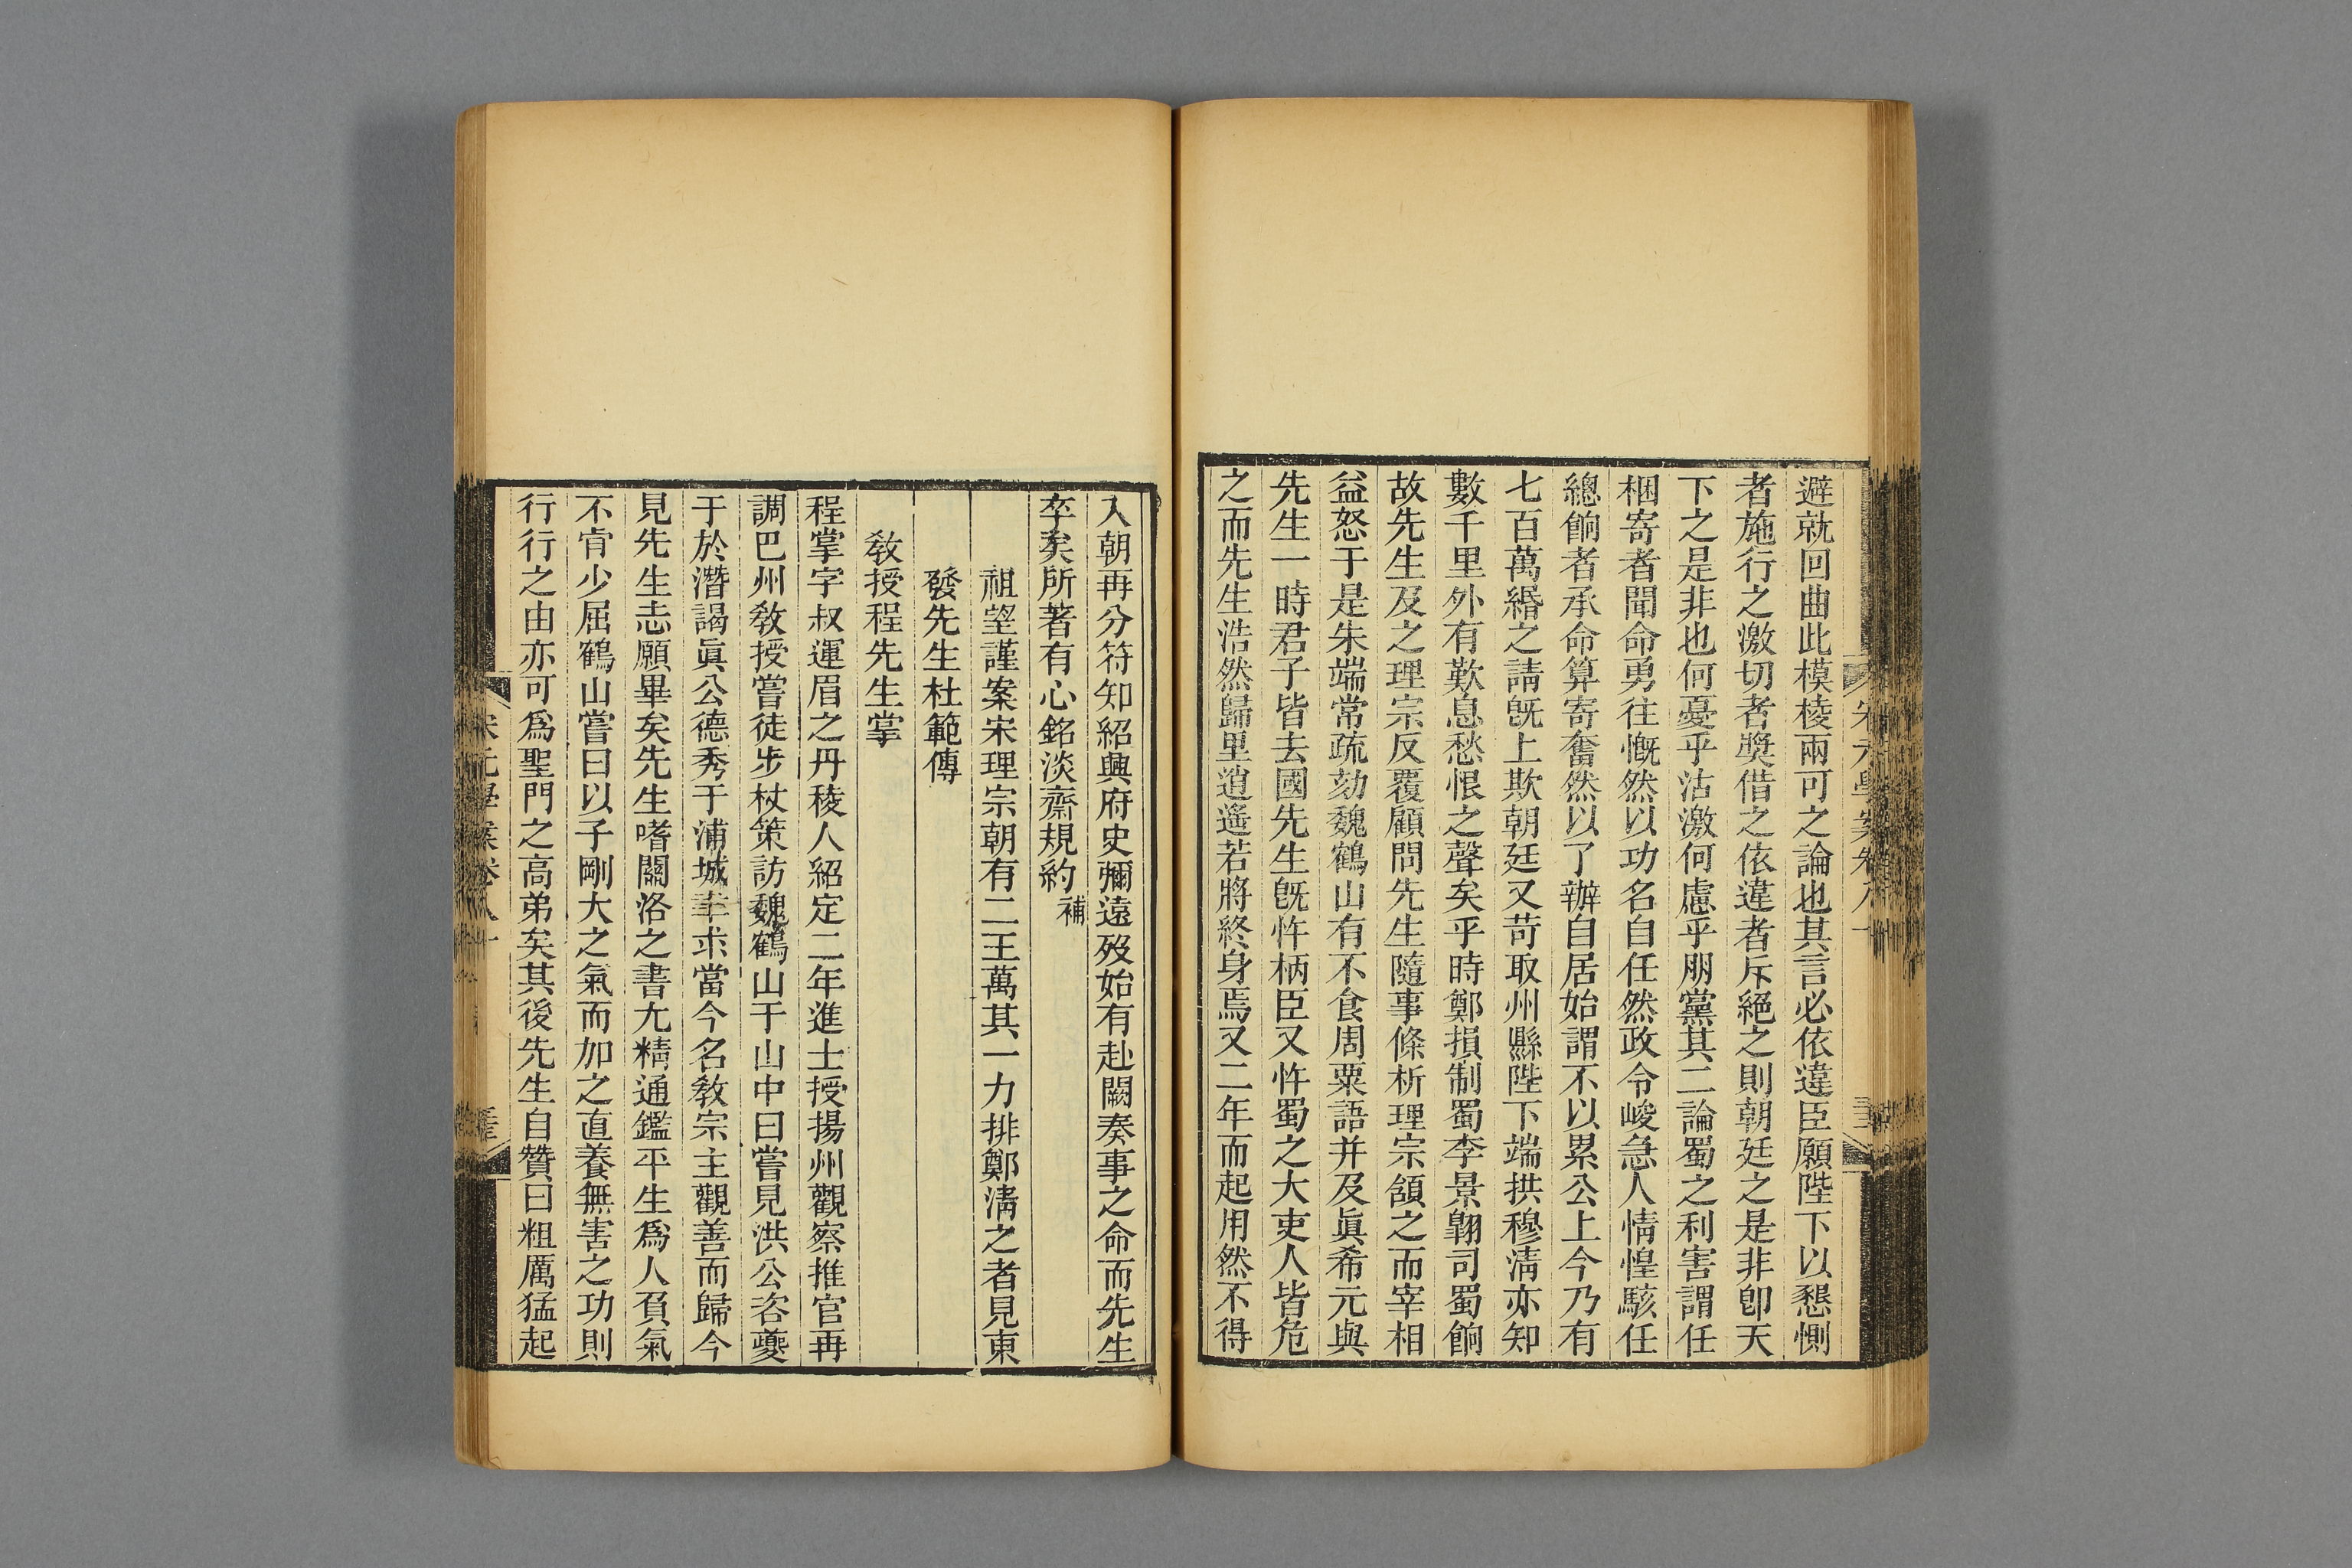 避就回曲此模棱兩可之論也其言必依違臣願陛下以懇惻
者施行之激切者奬借之依違者斥絕之則朝廷之是非卽天
下之是非也何憂乎沽激何慮乎朋黨其二論蜀之利害謂任
梱寄者聞命勇往慨然以功名自任然政令峻急人情惶駭任
總餉者承命算寄奮然以了辦自居始謂不以累公上今乃有
七百萬緡之請旣上欺朝廷又苛取州縣陛下端拱穆淸亦知
數千里外有歎息愁恨之聲矣乎時鄭損制蜀李景翺司蜀餉
故先生及之理宗反覆顧問先生隨事條析理宗頷之而宰相
益怒于是朱端常疏劾魏鶴山有不食周粟語并及眞希元與
先生一時君子皆去國先生旣忤柄臣又忤蜀之大吏人皆危
之而先生浩然歸里逍遙若將終身焉又二年而起用然不得
宋元學案卷八十
入朝再分符知紹興府史彌遠歿始有赴闕奏事之命而先生
卒矣所著有心銘淡齋規約補
祖望謹案宋理宗朝有二王萬其一力排鄭淸之者見東
發先生杜範傳
敎授程先生掌
程掌字叔運眉之丹稜人紹定二年進士授揚州觀察推官再
調巴州敎授嘗徒步杖策訪魏鶴山于山中曰嘗見洪公咨夔
于於潛謁眞公德秀于浦城幸求當今名敎宗主觀善而歸今
見先生志願畢矣先生嗜關洛之書尤精通鑑平生爲人負氣
不肯少屈鶴山嘗曰以子剛大之氣而加之直養無害之功則
行行之由亦可爲聖門之高弟矣其後先生自贊曰粗厲猛起
宋元學案卷八十